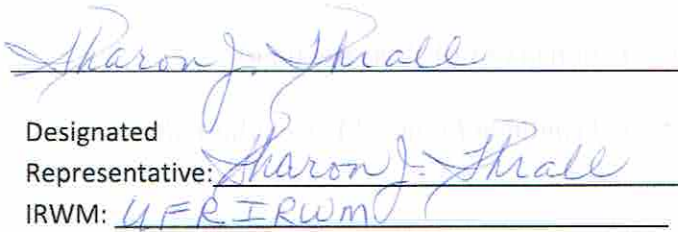 Sharon J. Thrall
Designated
Representative: Sharon J. Thrall
IRWM: UFR IRWM